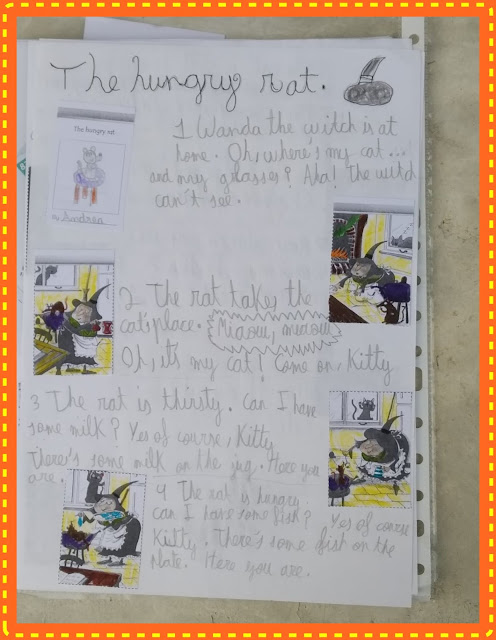 The hungry rat.
The hungry rat
By Andrea
1 Wanda the witch is at
home. Oh, where's my cat...
and my glasses? Aha! The witch
can't see.
2 The rat takes the
cat's place. Miaow, miaow
Oh, it's my cat! Come on, Kitty
3 The rat is thirsty. Can I have
some milk? Yes of course, Kitty
There's some milk on the jug. Here you
are.
4 The rat is hungry
can I have some fish? Yes of course
Kitty. There's some fish on the
Plate. Here you are.